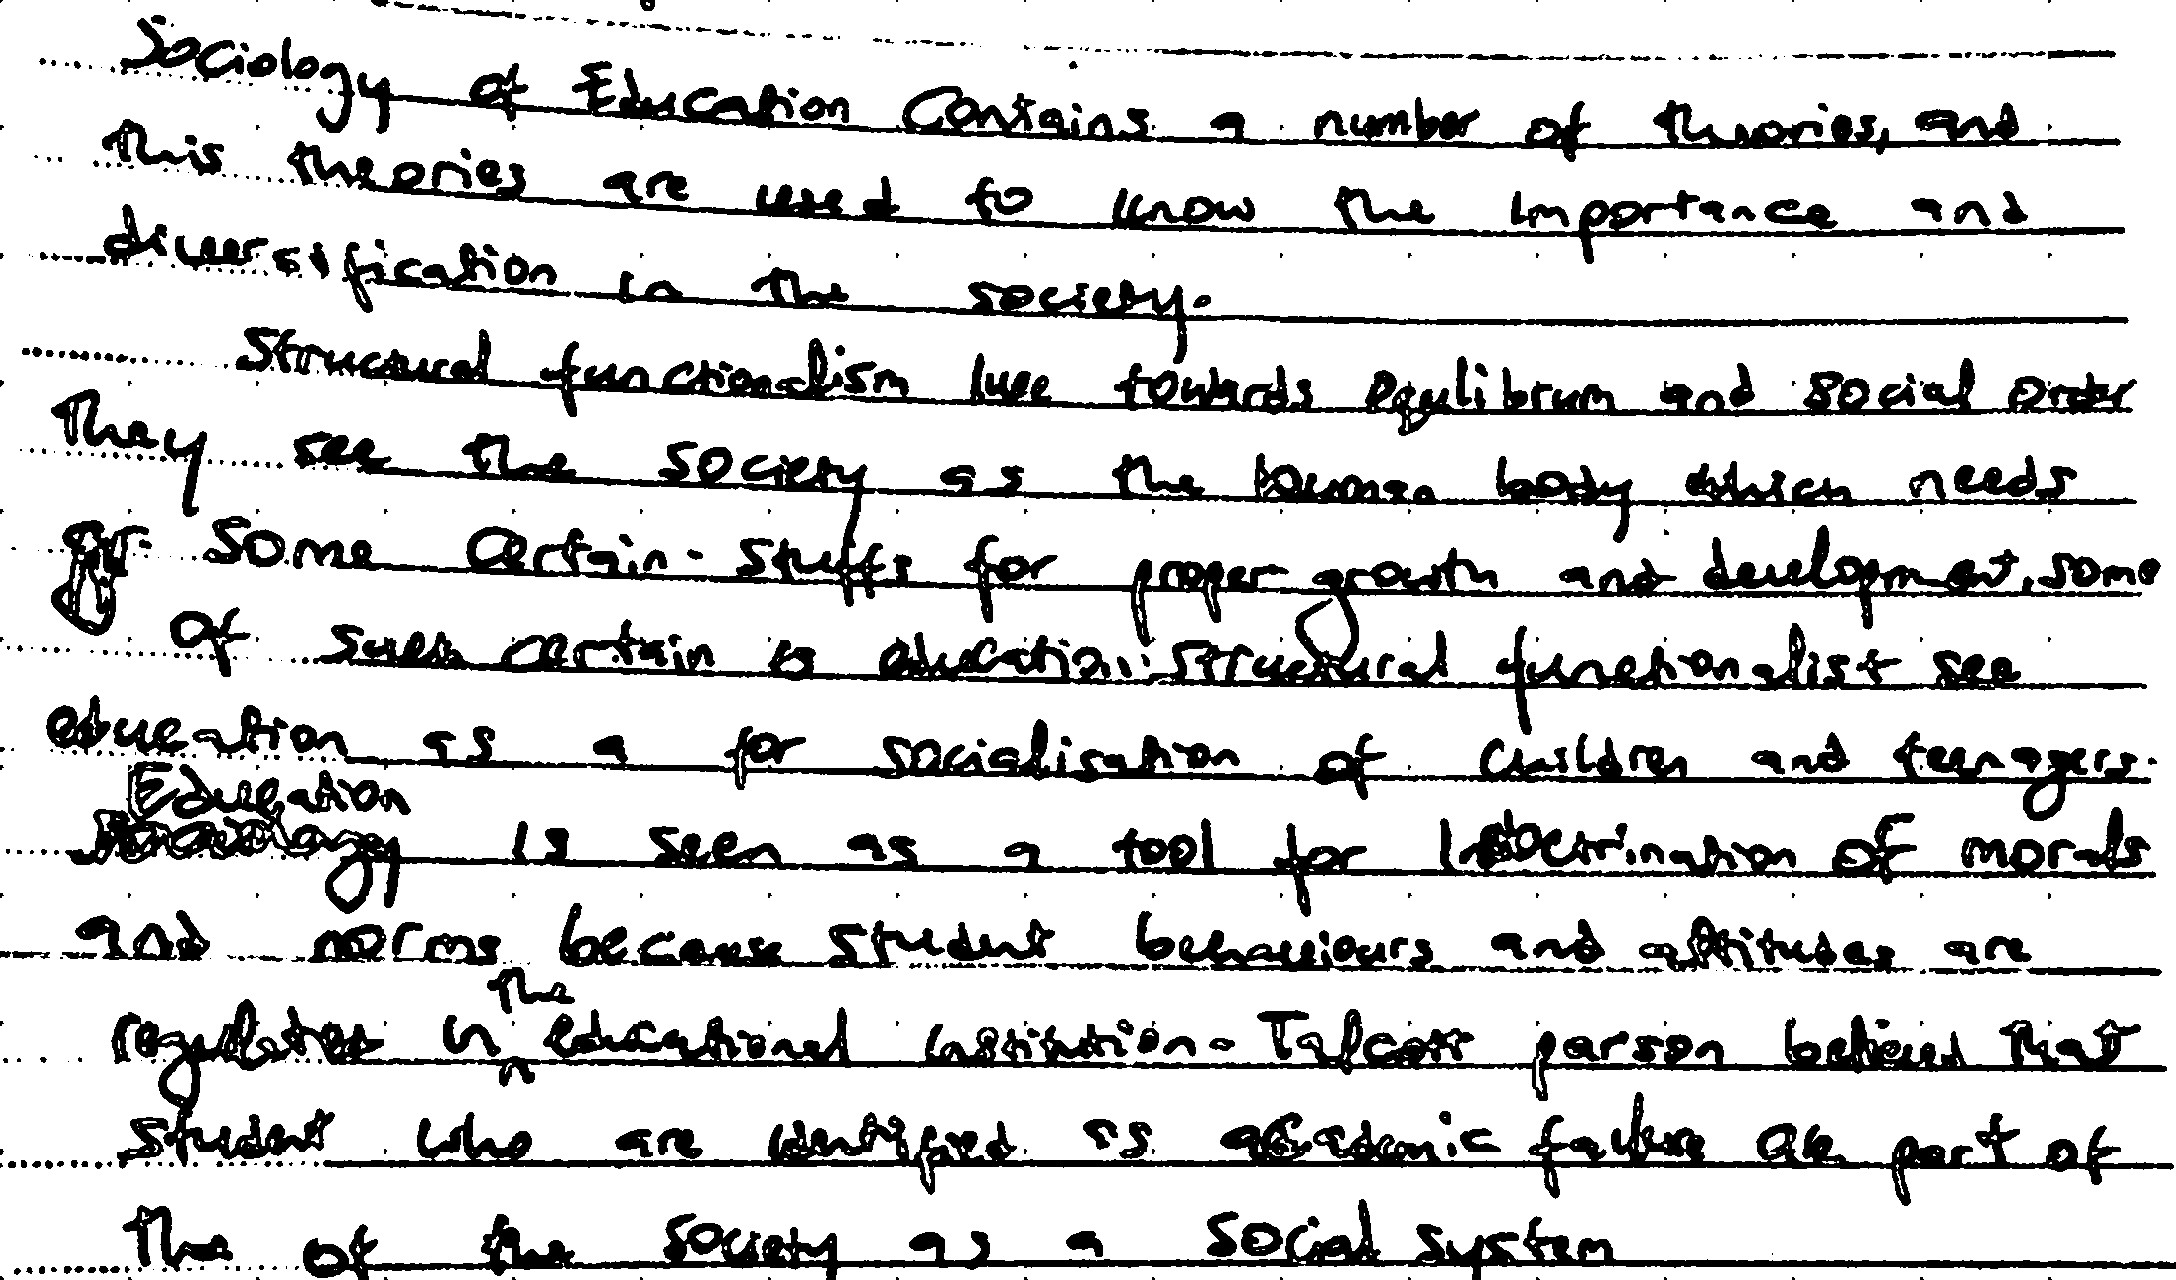 Sociology of Education Contains a number of theories, and
this theories are used to know the importance and
diversification in the society.
Structural functionalism luse towards equlibrum and social order
They see the society as the human body which needs
some certain stuffs for proper growth and development, some
of such certain is education. Structural functionalist see
education as a for socialisation of children and teenagers.
Education is seen as a tool for indoctrination of morals
and norms because student behaviours and attitudes are
regulated in the educational institution. Talcott parson believed that
student who are identified as academic failure are part of
the of the society as a social system